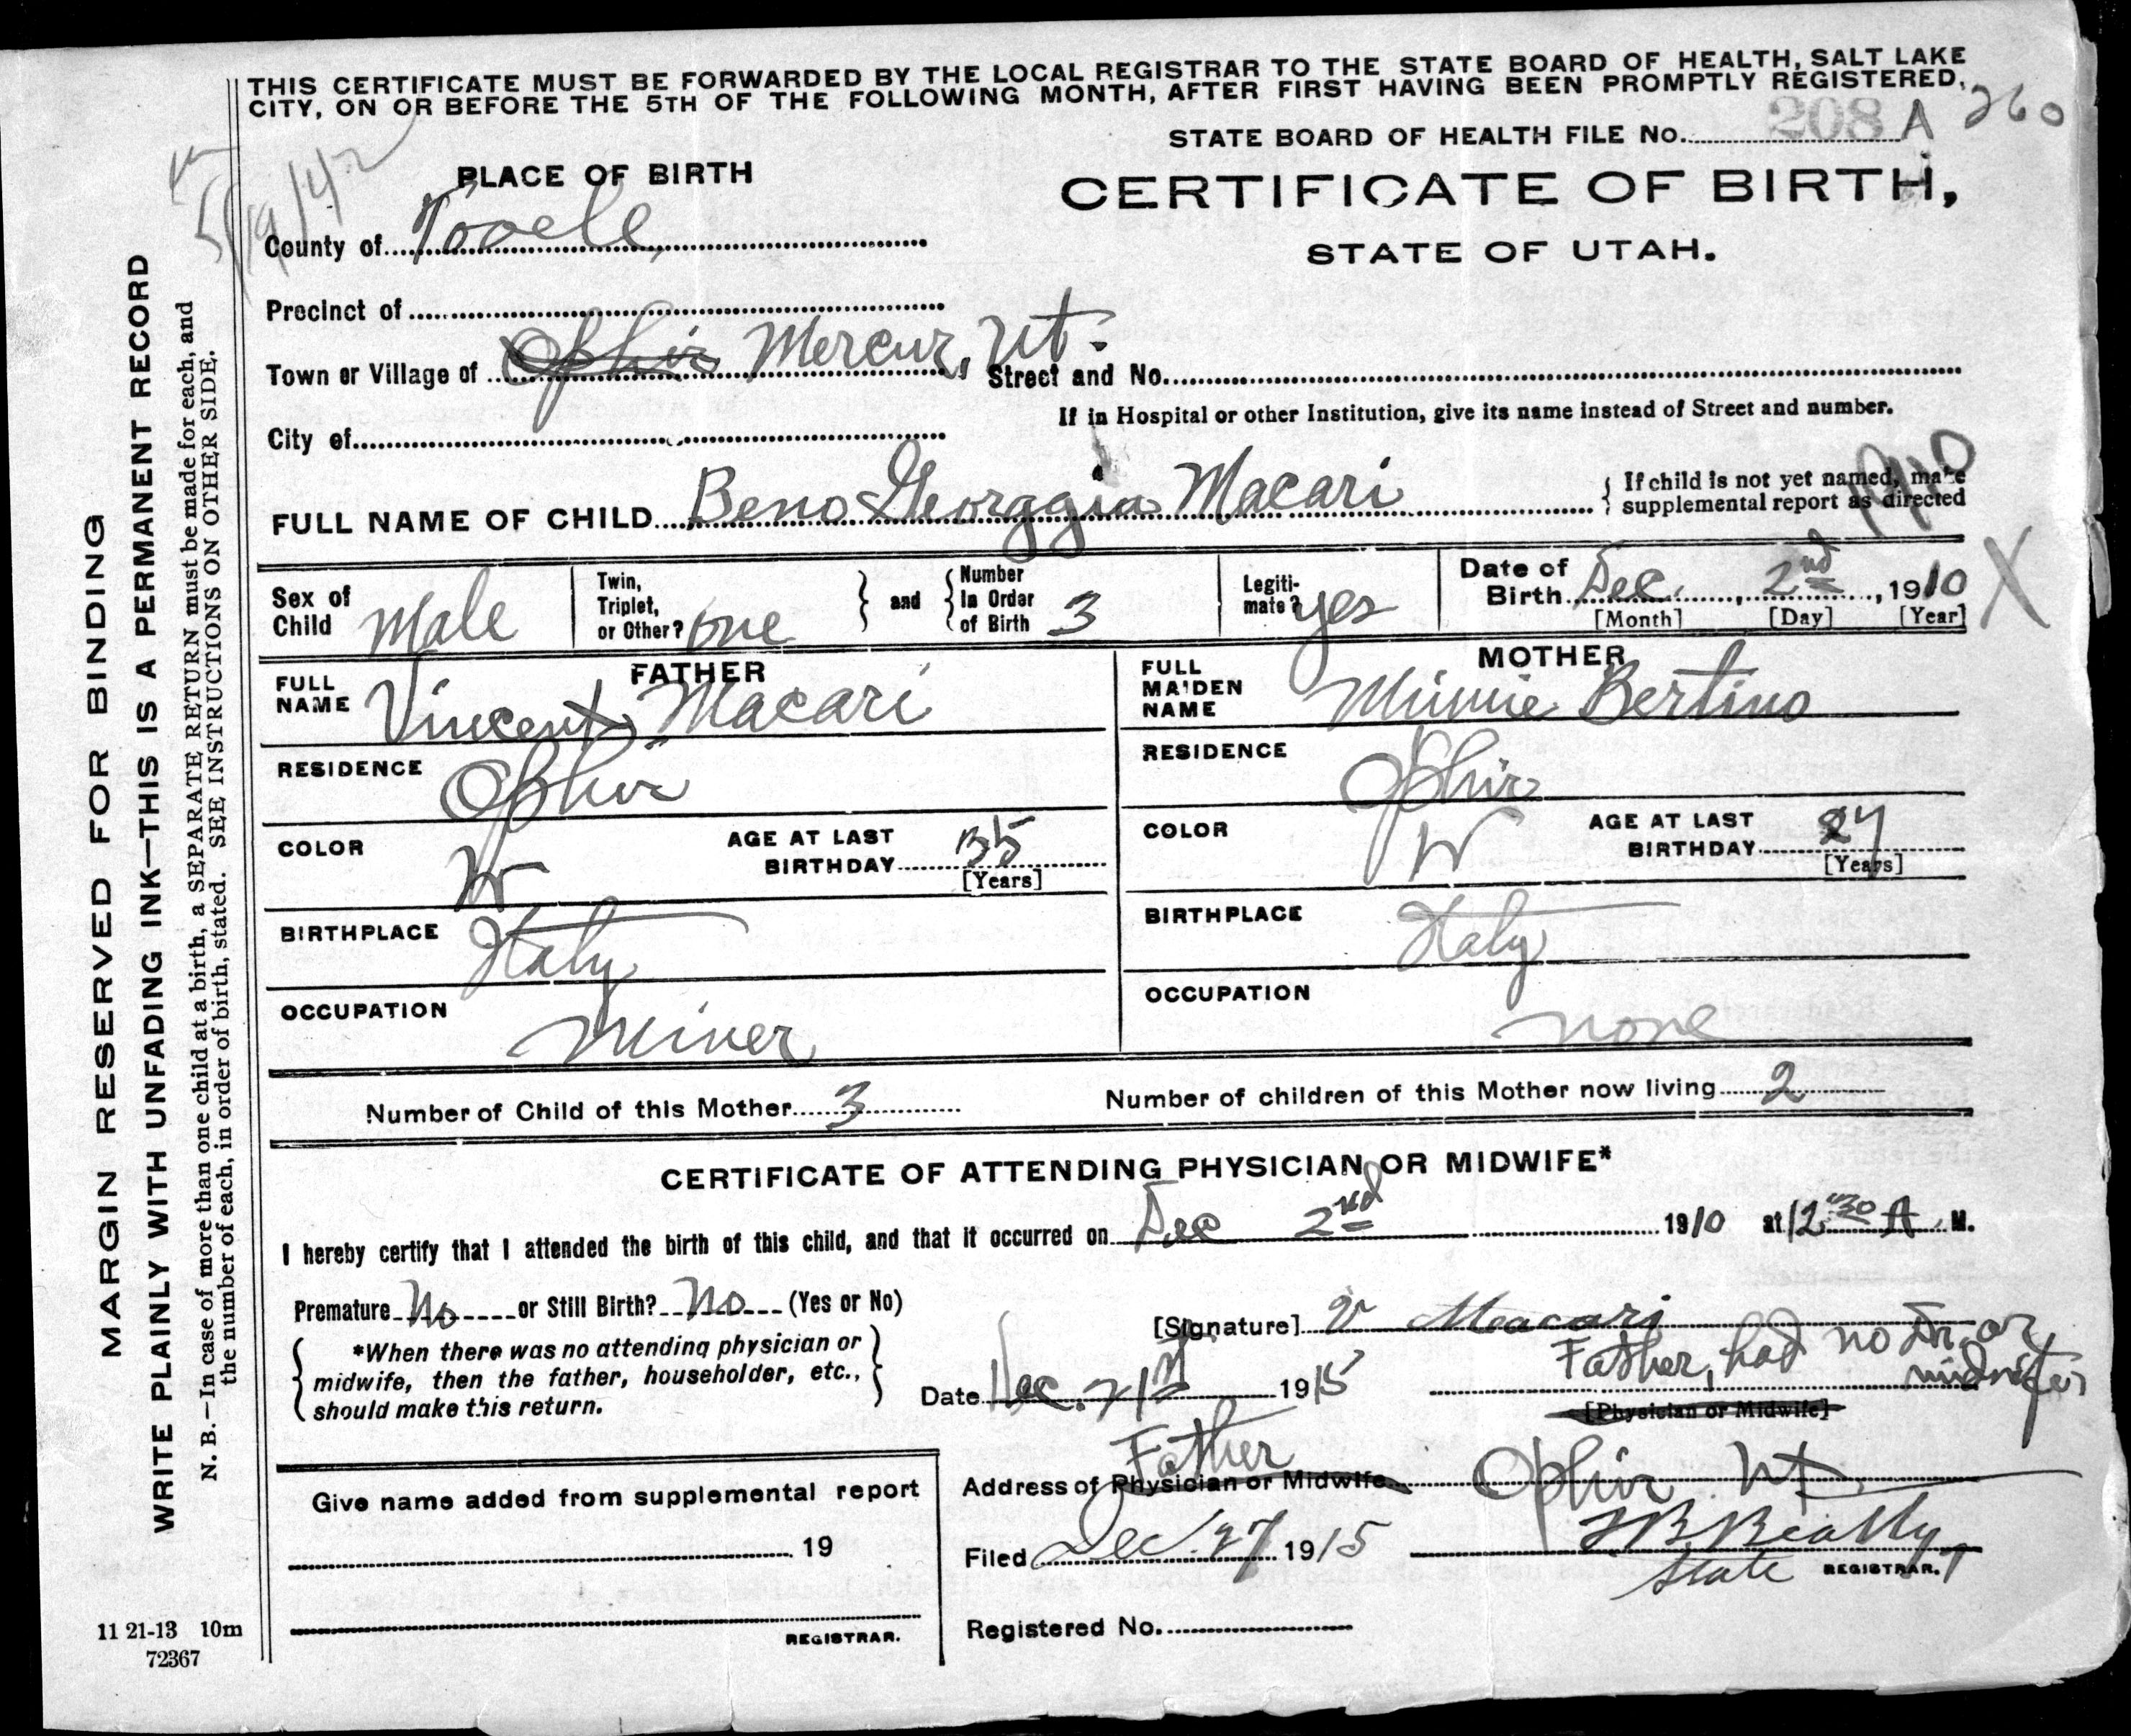 THIS CERTIFICATE MUST BE FORWARDED BY THE LOCAL REGISTRAR TO THE STATE BOARD OF HEALTH, SALT LAKE
CITY, ON OR BEFORE THE 5TH OF THE FOLLOWING MONTH, AFTER FIRST HAVING BEEN PROMPTLY REGISTERED,
STATE BOARD OF HEALTH FILE No. 208 A 260
5/19/42
PLACE OF BIRTH
CERTIFICATE OF BIRTH,
STATE OF UTAH.
County of Tooele
Precinct of
Town or Village of Ophir Mercur, Ut. Street and No.
If in Hospital or other Institution, give its name instead of Street and number.
City of
1910
FULL NAME OF CHILD Beno Georggia Macari { If child is not yet named, make
supplemental report as directed
Sex of Child Male
Twin, Triplet, or Other? one } and { Number In Order of Birth 3
Legitimate? yes
Date of Birth Dec. 2nd, 1910 X
[Month] [Day] [Year]
FATHER
FULL NAME Vincent Macari
RESIDENCE Ophir
COLOR W AGE AT LAST BIRTHDAY 35
[Years]
BIRTHPLACE Italy
OCCUPATION Miner
MOTHER
FULL MAIDEN NAME Minnie Bertino
RESIDENCE Ophir
COLOR W AGE AT LAST BIRTHDAY
[Years]
BIRTHPLACE Italy
OCCUPATION none
Number of Child of this Mother 3 Number of children of this Mother now living 2
CERTIFICATE OF ATTENDING PHYSICIAN OR MIDWIFE*
I hereby certify that I attended the birth of this child, and that it occurred on Dec 2nd 1910 at 12:30 A. M.
Premature No or Still Birth? No (Yes or No)
{ *When there was no attending physician or
midwife, then the father, householder, etc.,
should make this return. }
[Signature] V Macari
Father, had no Dr. or
midwife
Date Dec. 21st 1915
[Physician or Midwife]
Father
Address of Physician or Midwife Ophir Ut.
Filed Dec. 27 1915 T B Beatty
State REGISTRAR.
Registered No.
Give name added from supplemental report
19
REGISTRAR.
MARGIN RESERVED FOR BINDING
WRITE PLAINLY WITH UNFADING INK—THIS IS A PERMANENT RECORD
N. B.—In case of more than one child at a birth, a SEPARATE RETURN must be made for each, and
the number of each, in order of birth, stated. SEE INSTRUCTIONS ON OTHER SIDE.
11 21-13 10m
72367